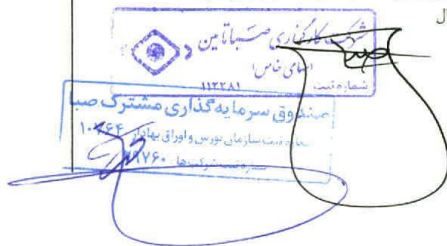 ل
شرکت کارگزاری صباتامین
(سهامی خاص)
شماره ثبت: ۱۱۲۲۸۱
صندوق سرمایه‌گذاری مشترک صبا
شماره ثبت سازمان بورس و اوراق بهادار
شماره ثبت شرکت‌ها